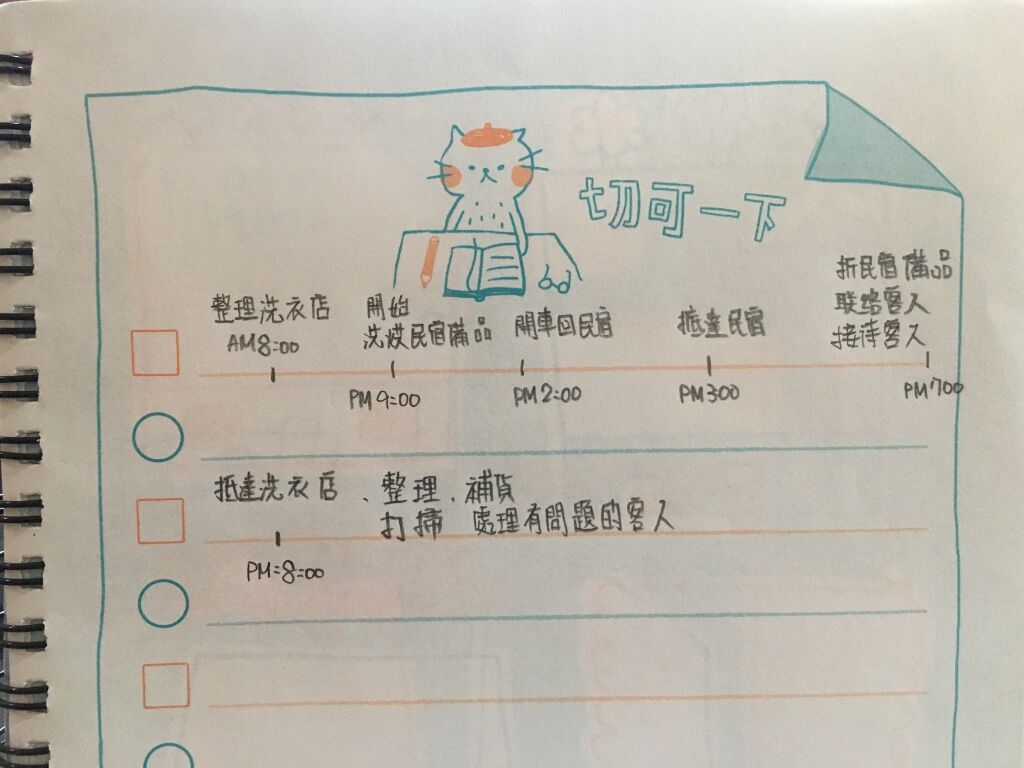 切可一下
整理洗衣店
AM8:00
開始
洗烘民宿備品
PM9:00
開車回民宿
PM2:00
抵達民宿
PM300
折民宿備品
联络客人
接待客人
PM700
抵達洗衣店、整理、補貨
打掃 處理有問題的客人
PM=8:00